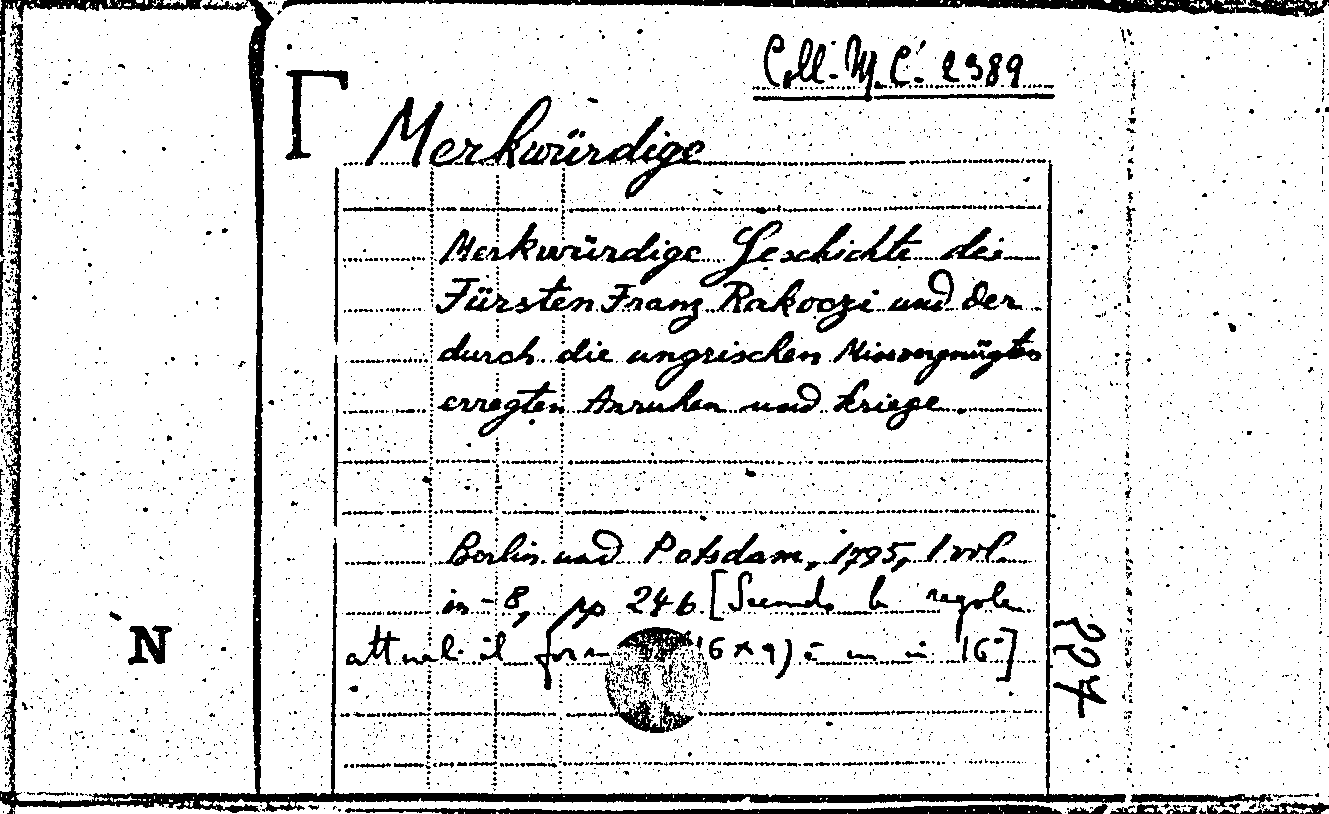 Coll. M. C. 2389
Γ
Merkwürdige
Merkwürdige Geschichte des
Fürsten Franz Rakoczi und der
durch die ungrischen Missvergnügten
erregten Unruhen und Kriege.
Berlin und Potsdam, 1795, 1 vol.
in-8, pp 246 [Secondo le regole
attuali il form 16×9) è un in 16°]
N